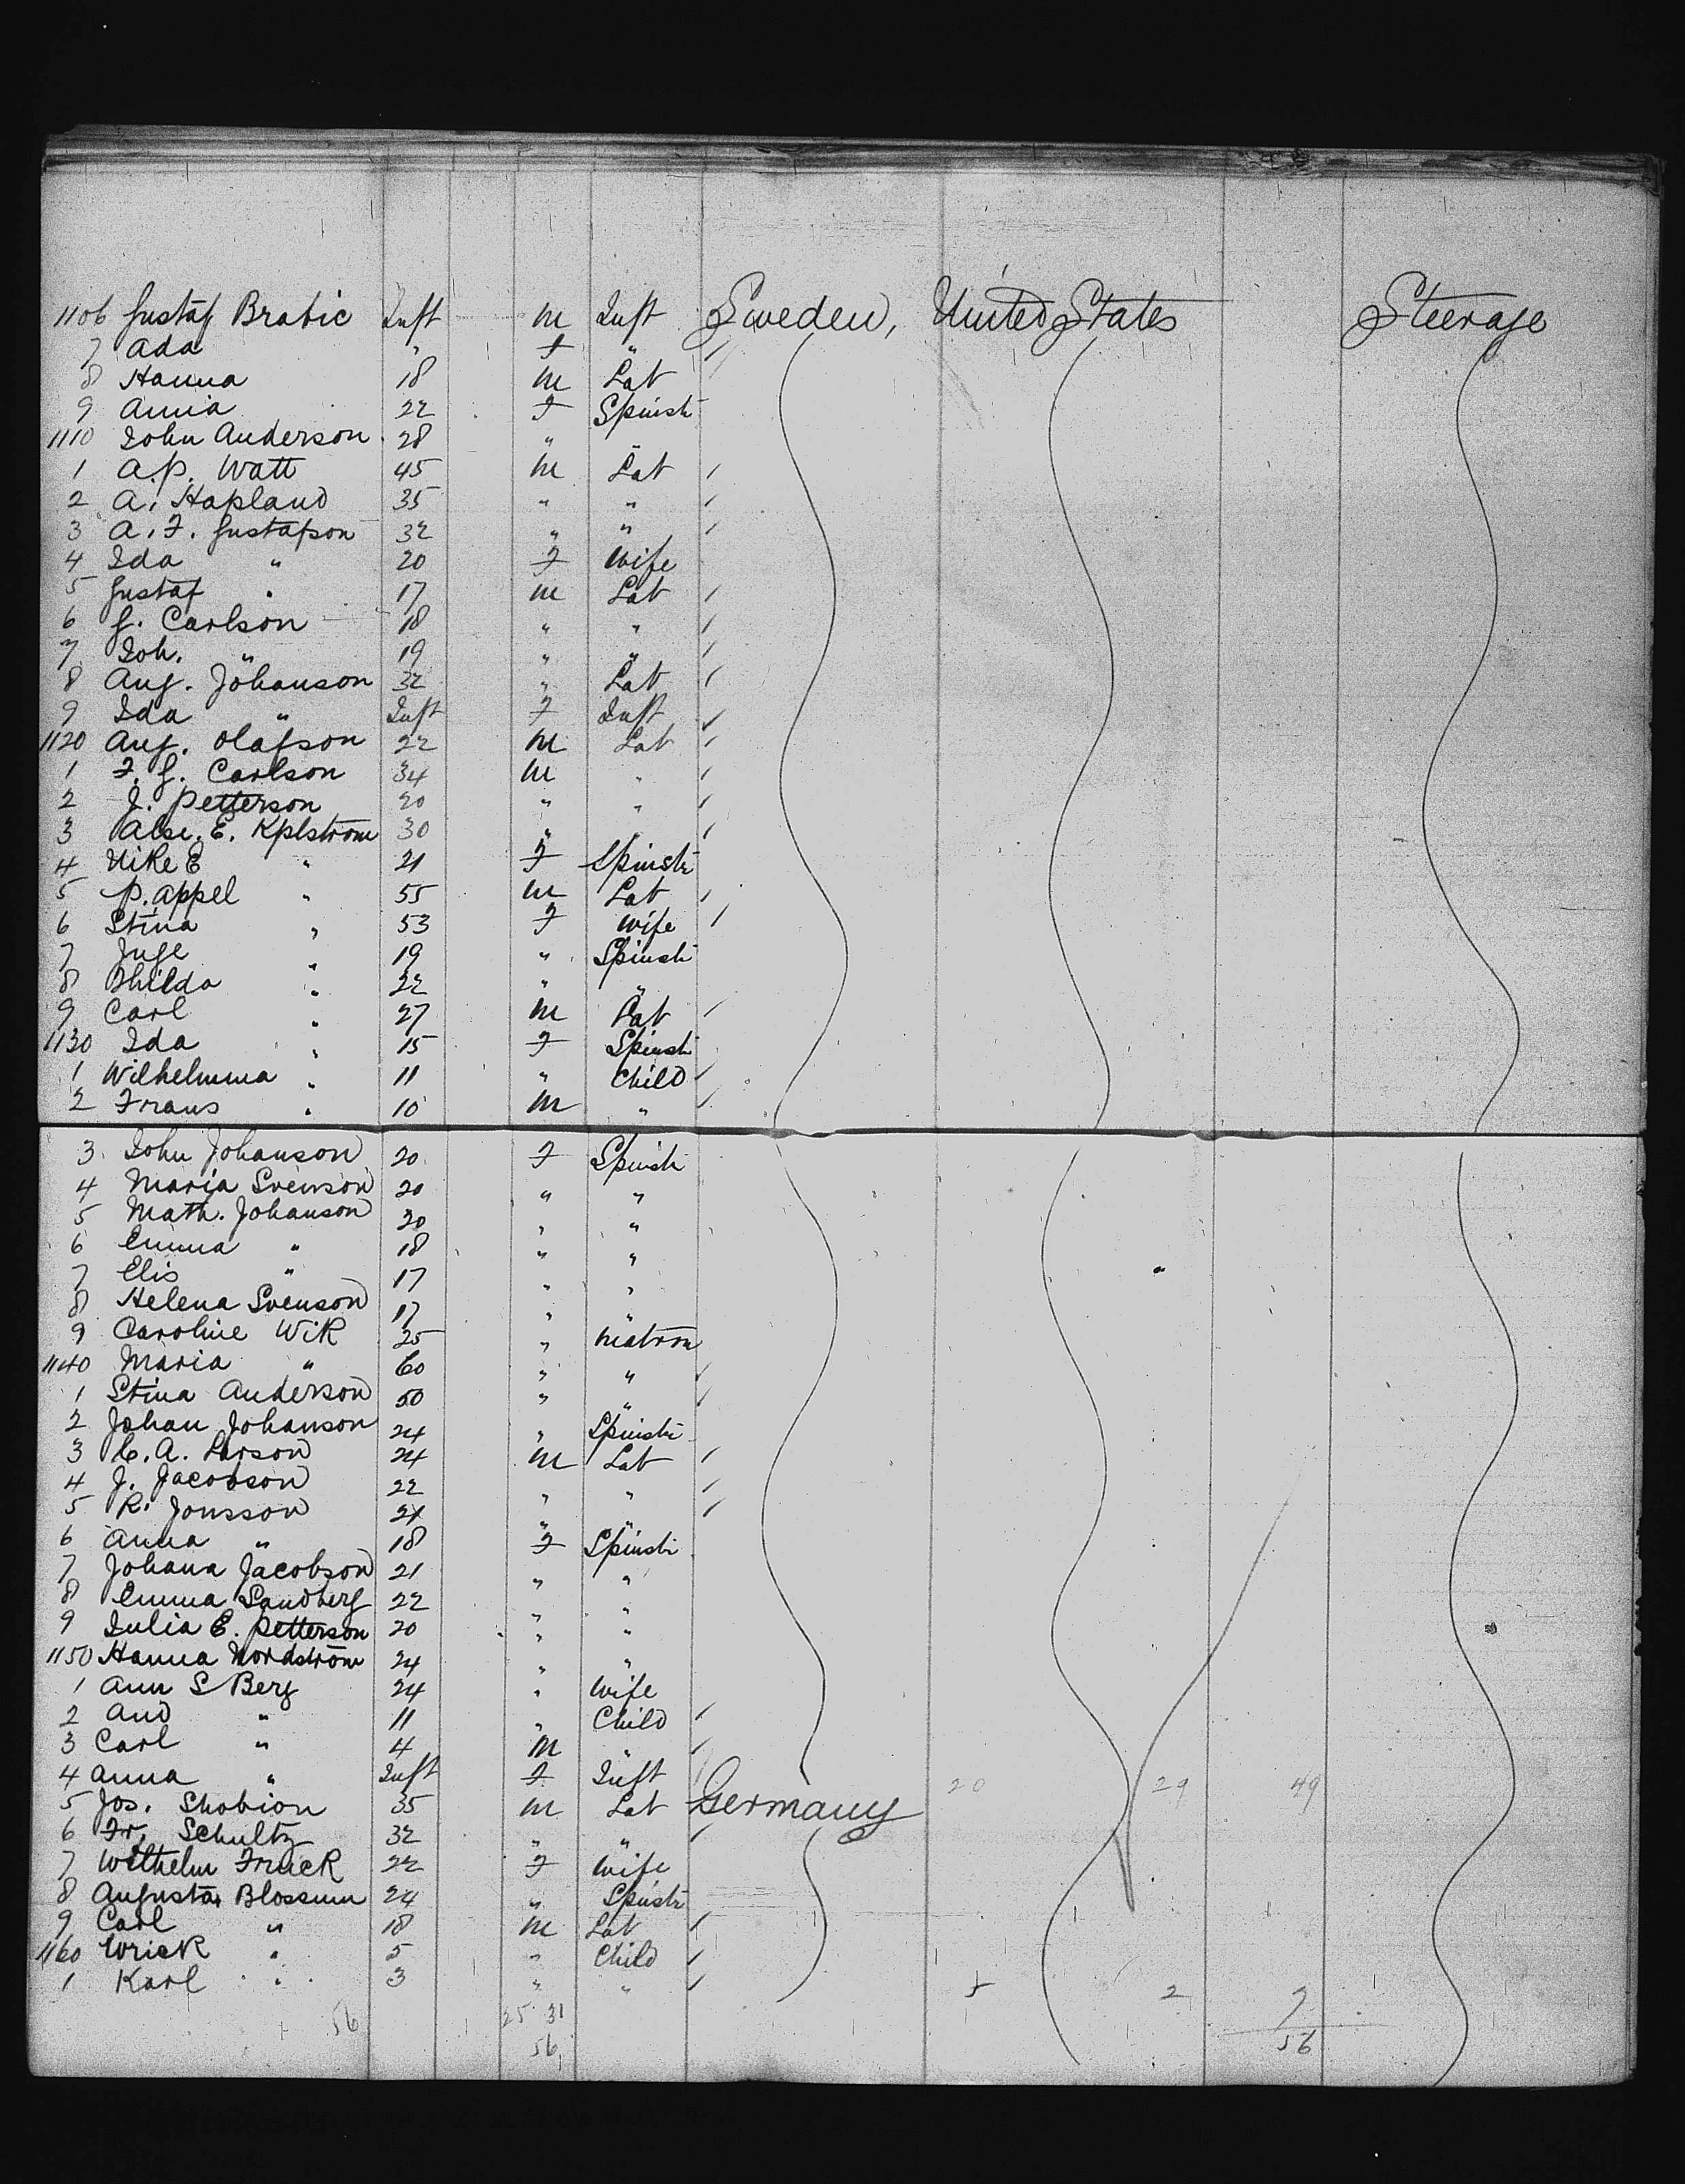 1106 Gustaf Brabic Inft m Inft Sweden, United States Steerage
7 Ada " f "
8 Hanna 18 m Lab
9 Annia 22 f Spinstr
1110 John Anderson 28 " "
1 A.P. Watt 45 m Lab
2 A. Hapland 35 " "
3 A. F. Gustafson 32 " "
4 Ida " 20 f Wife
5 Gustaf " 17 m Lab
6 G. Carlson 18 " "
7 Joh. " 19 " "
8 Aug. Johanson 32 " Lab
9 Ida " Inft f Inft
1120 Aug. Olafson 22 m Lab
1 F. G. Carlson 34 m "
2 J. Petterson 20 " "
3 E. Kplström 30 "
4 E " 21 f Spinstr
5 P. Appel " 55 m Lab
6 Stina " 53 f Wife
7 Inge " 19 " Spinstr
8 Bhilda " 22 " "
9 Carl " 27 m Lab
1130 Ida " 15 f Spinstr
1 Wilhelmina " 11 " Child
2 Frans " 10 m "
3 John Johanson 20 f Spinstr
4 Maria Svenson 20 " "
5 Math. Johanson 20 " "
6 Emma " 18 " "
7 Elis " 17 " "
8 Helena Svenson 17 " "
9 Caroline Wik 25 " Matron
1140 Maria " 60 " "
1 Stina Anderson 50 " "
2 Johan Johanson 24 " Spinstr
3 C. A. Larson 24 m Lab
4 J. Jacobson 22 " "
5 R. Jonsson 21 " "
6 Anna " 18 f Spinstr
7 Johana Jacobson 21 " "
8 Emma Sandberg 22 " "
9 Julia E. Petterson 20 " "
1150 Hanna Nordström 24 " "
1 Ann S Berg 24 " Wife
2 And " 11 " Child
3 Carl " 4 m "
4 Anna " Inft f Inft 20 29 49
5 Jos. Shobion 35 m Lab Germany
6 Fr. Schultz 32 " "
7 Wilhelm Fruck 22 f Wife
8 Augusta Blossum 24 " Spinstr
9 Carl " 18 m Lab
1160 Wrick " 5 " Child
1 Karl " 3 " " 5 2 7
56 25 31
56 56